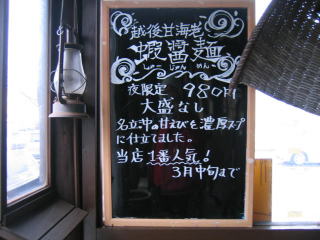 越後甘海老
蝦醤麺
しゃーじゃんめん
夜限定 980円
大盛なし
名立沖の甘えびを濃厚スープ
に仕立てました。
当店1番人気!
3月中旬まで